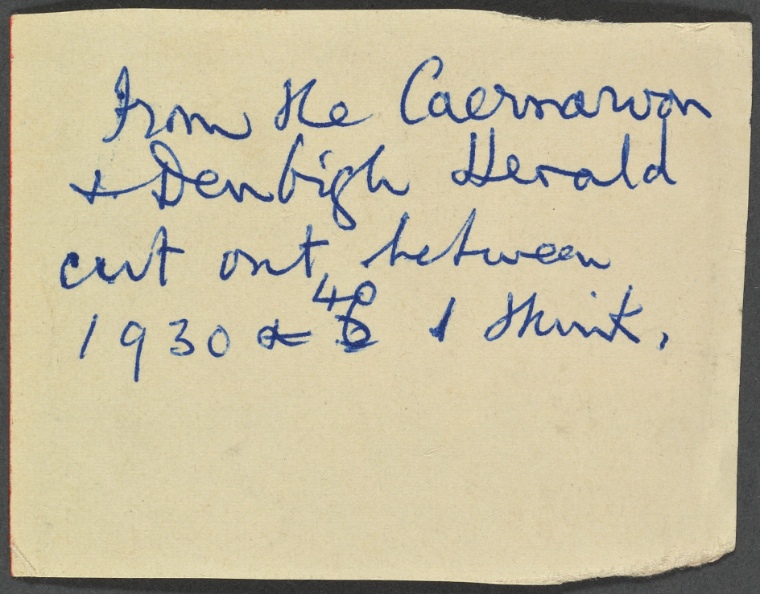 From the Caernarvon
& Denbigh Herald
cut out between
1930 & 40 I think.